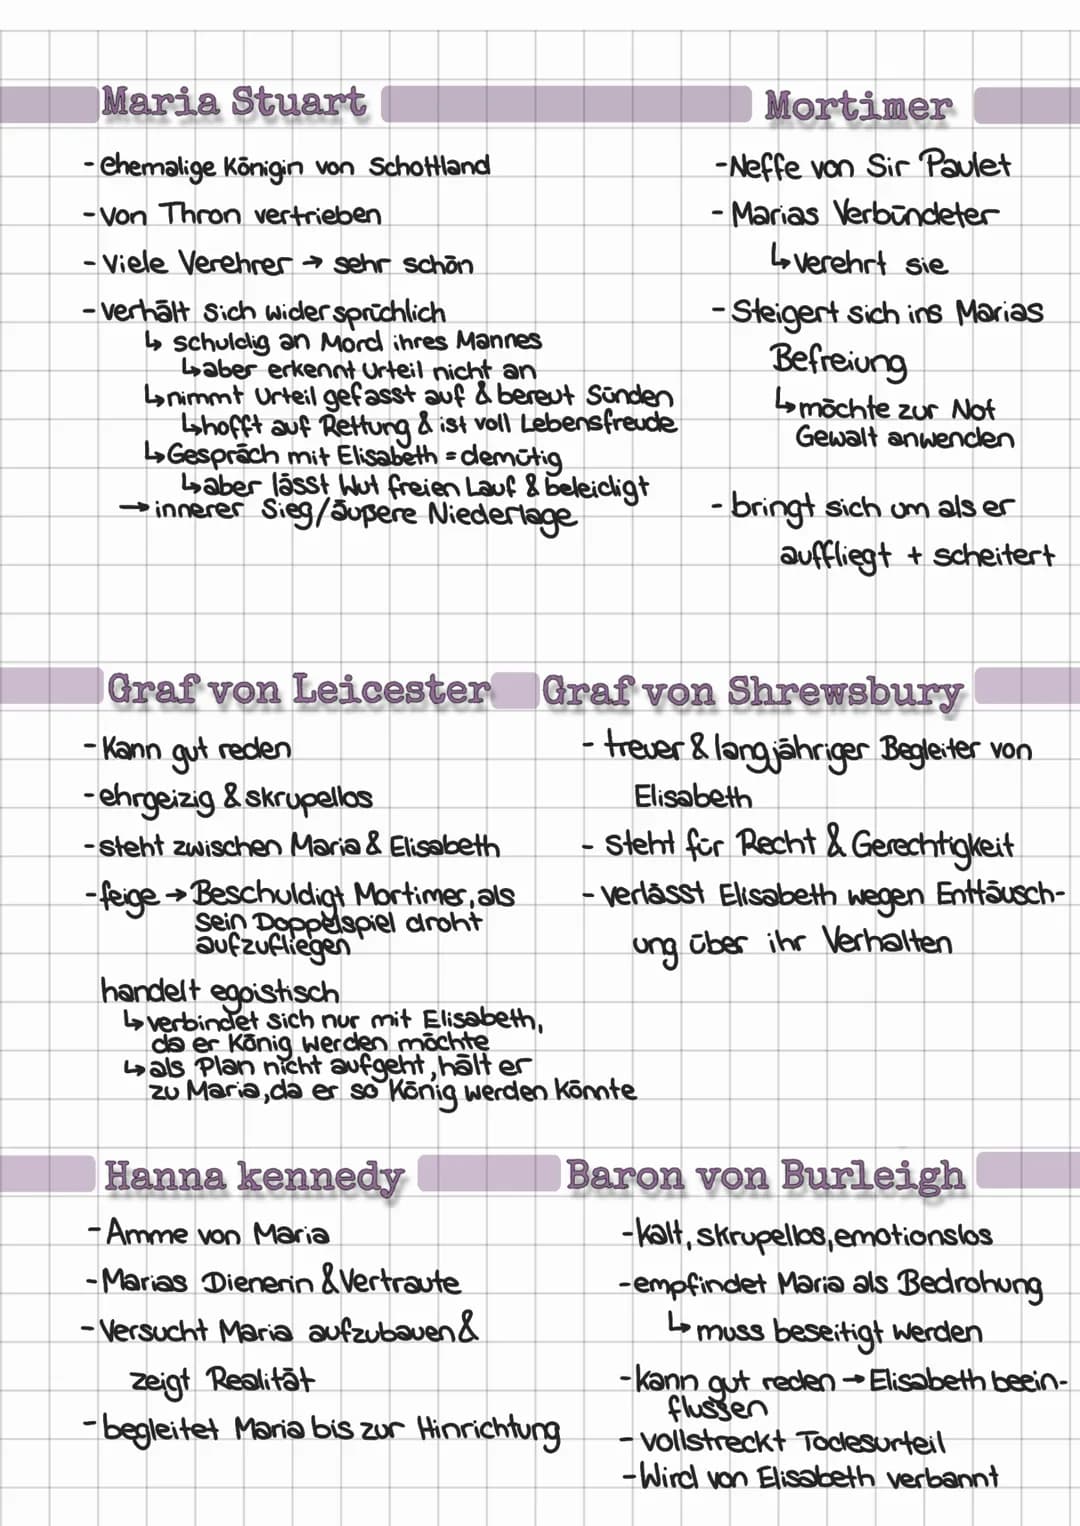 Maria Stuart
- ehemalige Königin von Schottland
- von Thron vertrieben
- Viele Verehrer → sehr schön
- verhält sich widersprüchlich
↳ schuldig an Mord ihres Mannes
↳ aber erkennt Urteil nicht an
↳ nimmt Urteil gefasst auf & bereut Sünden
↳ hofft auf Rettung & ist voll Lebensfreude
↳ Gespräch mit Elisabeth = demütig
↳ aber lässt Wut freien Lauf & beleidigt
→ innerer Sieg/äußere Niederlage
Mortimer
- Neffe von Sir Paulet
- Marias Verbündeter
↳ verehrt sie
- Steigert sich ins Marias
Befreiung
↳ möchte zur Not
Gewalt anwenden
- bringt sich um als er
auffliegt + scheitert
Graf von Leicester
- Kann gut reden
- ehrgeizig & skrupellos
- steht zwischen Maria & Elisabeth
- feige → Beschuldigt Mortimer, als
sein Doppelspiel droht
aufzufliegen
handelt egoistisch
↳ verbindet sich nur mit Elisabeth,
da er König werden möchte
↳ als Plan nicht aufgeht, hält er
zu Maria, da er so König werden könnte
Graf von Shrewsbury
- treuer & langjähriger Begleiter von
Elisabeth
- steht für Recht & Gerechtigkeit
- verlässt Elisabeth wegen Enttäusch-
ung über ihr Verhalten
Hanna kennedy
- Amme von Maria
- Marias Dienerin & Vertraute
- Versucht Maria aufzubauen &
zeigt Realität
- begleitet Maria bis zur Hinrichtung
Baron von Burleigh
- kalt, skrupellos, emotionslos
- empfindet Maria als Bedrohung
↳ muss beseitigt werden
- kann gut reden → Elisabeth beein-
flussen
- vollstreckt Todesurteil
- Wird von Elisabeth verbannt